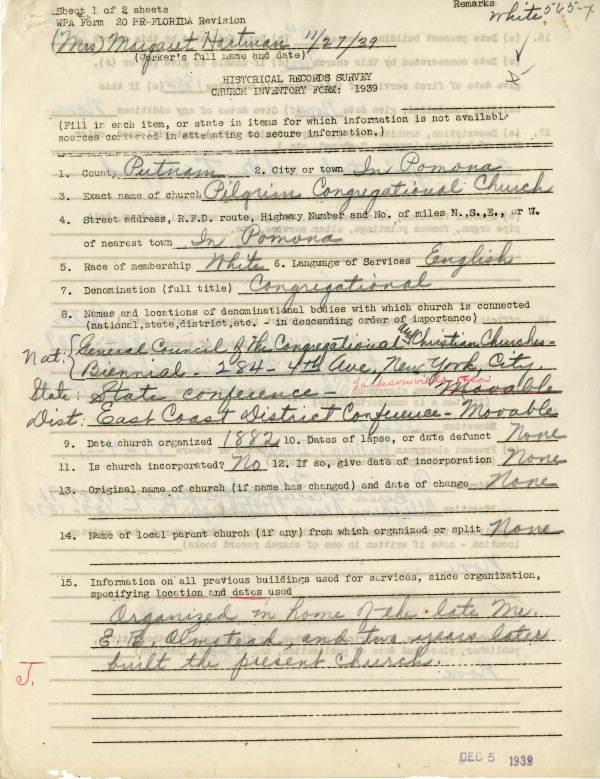 Sheet 1 of 2 sheets Remarks
WPA Form 20 HR-FLORIDA Revision White 565-x
(Mrs) Margaret Hartman 11/27/39
(Worker's full name and date)
HISTORICAL RECORDS SURVEY
CHURCH INVENTORY FORM: 1939
(Fill in each item, or state in items for which information is not available
sources contacted in attempting to secure information.)
1. County Putnam 2. City or town In Pomona
3. Exact name of church Pilgrim Congregational Church
4. Street address, R.F.D. route, Highway Number and No. of miles N.,S.,E., or W.
of nearest town In Pomona
5. Race of membership White 6. Language of Services English
7. Denomination (full title) Congregational
8. Names and locations of denominational bodies with which church is connected
(national,state,district,etc. - in descending order of importance)
Nat: General Council of the Congregational and Christian Churches -
Biennial - 284 - 4th Ave, New York, City.
Jacksonville
State: State conference - Movable
Dist: East Coast District Conference - Movable
9. Date church organized 1882 10. Dates of lapse, or date defunct None
11. Is church incorporated? No 12. If so, give date of incorporation None
13. Original name of church (if name has changed) and date of change None
14. Name of local parent church (if any) from which organized or split None
15. Information on all previous buildings used for services, since organization,
specifying location and dates used
Organized in home of the late Mr.
E. B. Olmstead, and two years later
built the present church.
J.
DEC 5 1939